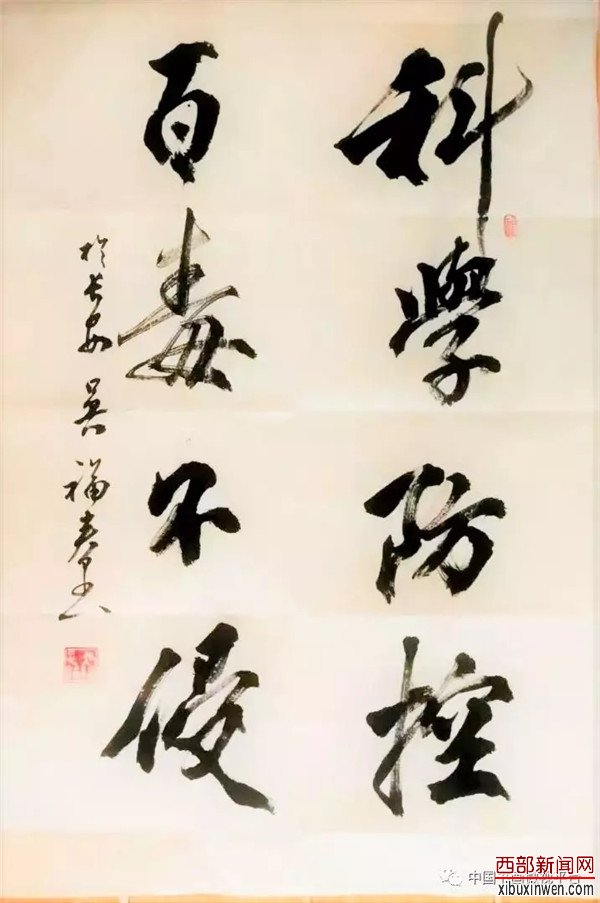 科學防控
百毒不侵
於長安 吴福春
中国
西部新闻网
xibuxinwen.com